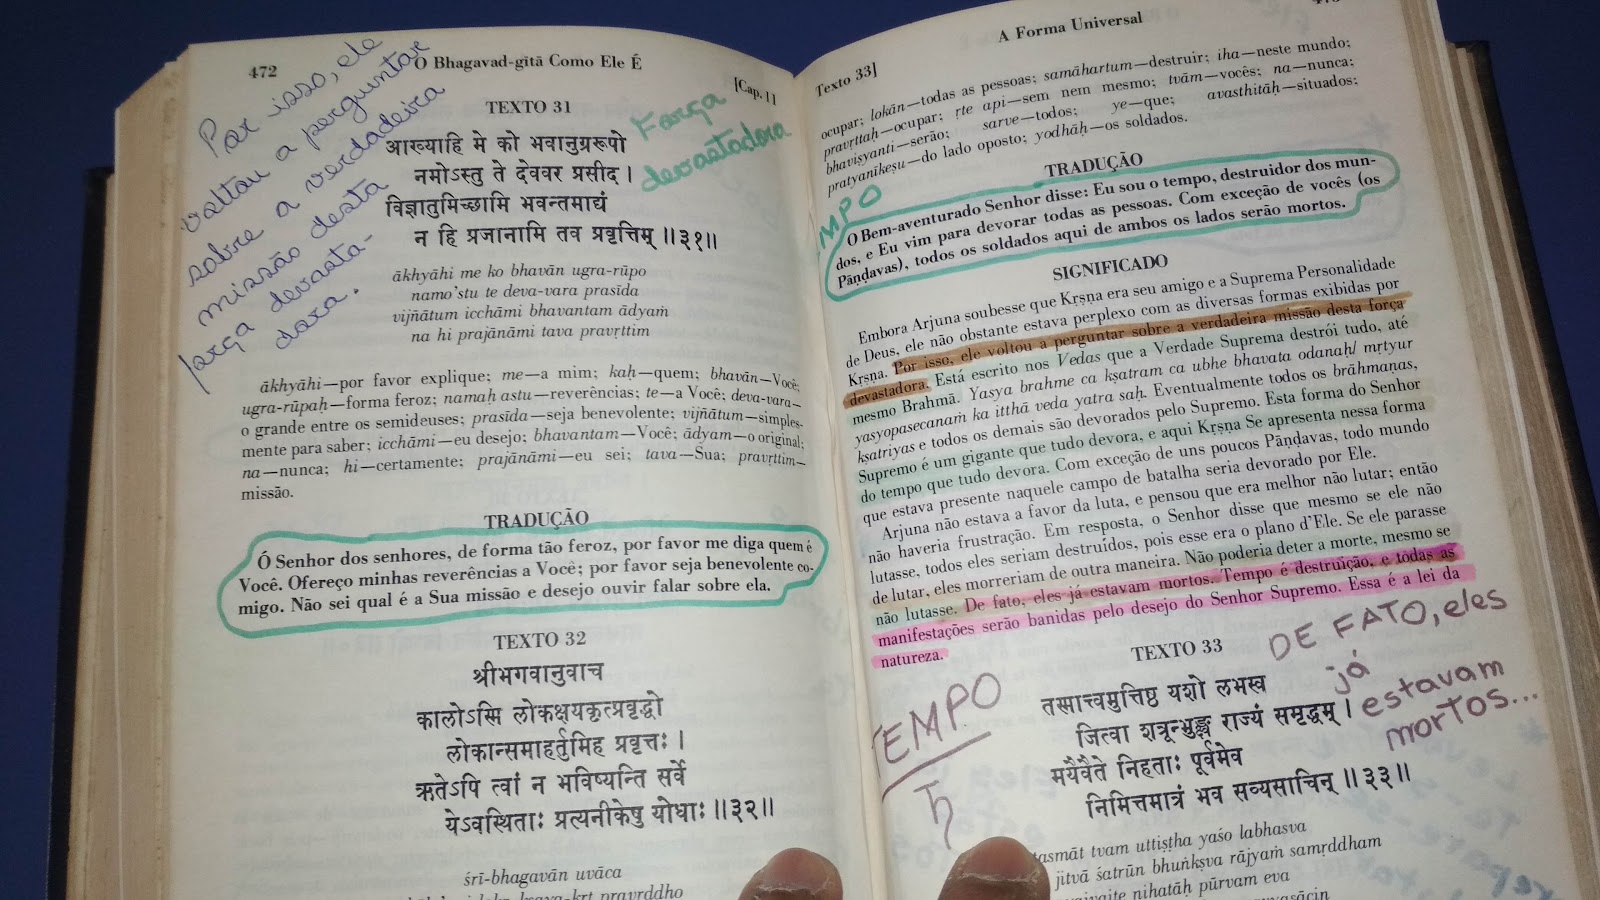 472
O Bhagavad-gītā Como Ele É
[Cap. 11
Por isso, ele
voltou a perguntar
sobre a verdadeira
missão desta
força devasta-
dora.
Força
devastadora
TEXTO 31
आख्याहि मे को भवानुग्ररूपो
नमोऽस्तु ते देववर प्रसीद ।
विज्ञातुमिच्छामि भवन्तमाद्यं
न हि प्रजानामि तव प्रवृत्तिम् ॥३१॥
ākhyāhi me ko bhavān ugra-rūpo
namo'stu te deva-vara prasīda
vijñātum icchāmi bhavantam ādyaṁ
na hi prajānāmi tava pravṛttim
ākhyāhi—por favor explique; me—a mim; kaḥ—quem; bhavān—Você;
ugra-rūpaḥ—forma feroz; namaḥ astu—reverências; te—a Você; deva-vara—
o grande entre os semideuses; prasīda—seja benevolente; vijñātum—simples-
mente para saber; icchāmi—eu desejo; bhavantam—Você; ādyam—o original;
na—nunca; hi—certamente; prajānāmi—eu sei; tava—Sua; pravṛttim—
missão.
TRADUÇÃO
Ó Senhor dos senhores, de forma tão feroz, por favor me diga quem é
Você. Ofereço minhas reverências a Você; por favor seja benevolente co-
migo. Não sei qual é a Sua missão e desejo ouvir falar sobre ela.
TEXTO 32
श्रीभगवानुवाच
कालोऽस्मि लोकक्षयकृत्प्रवृद्धो
लोकान्समाहर्तुमिह प्रवृत्तः ।
ऋतेऽपि त्वां न भविष्यन्ति सर्वे
येऽवस्थिताः प्रत्यनीकेषु योधाः ॥३२॥
śrī-bhagavān uvāca
Texto 33]
A Forma Universal
ocupar; lokān—todas as pessoas; samāhartum—destruir; iha—neste mundo;
pravṛttaḥ—ocupar; ṛte api—sem nem mesmo; tvām—vocês; na—nunca;
bhaviṣyanti—serão; sarve—todos; ye—que; avasthitāḥ—situados;
pratyanīkeṣu—do lado oposto; yodhāḥ—os soldados.
MPO
TRADUÇÃO
O Bem-aventurado Senhor disse: Eu sou o tempo, destruidor dos mun-
dos, e Eu vim para devorar todas as pessoas. Com exceção de vocês (os
Pāṇḍavas), todos os soldados aqui de ambos os lados serão mortos.
SIGNIFICADO
Embora Arjuna soubesse que Kṛṣṇa era seu amigo e a Suprema Personalidade
de Deus, ele não obstante estava perplexo com as diversas formas exibidas por
Kṛṣṇa. Por isso, ele voltou a perguntar sobre a verdadeira missão desta força
devastadora. Está escrito nos Vedas que a Verdade Suprema destrói tudo, até
mesmo Brahmā. Yasya brahme ca kṣatram ca ubhe bhavata odanaḥ/ mṛtyur
yasyopasecanaṁ ka itthā veda yatra saḥ. Eventualmente todos os brāhmaṇas,
kṣatriyas e todos os demais são devorados pelo Supremo. Esta forma do Senhor
Supremo é um gigante que tudo devora, e aqui Kṛṣṇa Se apresenta nessa forma
do tempo que tudo devora. Com exceção de uns poucos Pāṇḍavas, todo mundo
que estava presente naquele campo de batalha seria devorado por Ele.
Arjuna não estava a favor da luta, e pensou que era melhor não lutar; então
não haveria frustração. Em resposta, o Senhor disse que mesmo se ele não
lutasse, todos eles seriam destruídos, pois esse era o plano d'Ele. Se ele parasse
de lutar, eles morreriam de outra maneira. Não poderia deter a morte, mesmo se
não lutasse. De fato, eles já estavam mortos. Tempo é destruição, e todas as
manifestações serão banidas pelo desejo do Senhor Supremo. Essa é a lei da
natureza.
TEMPO
♄
DE FATO, eles
já
estavam
mortos...
TEXTO 33
तस्मात्त्वमुत्तिष्ठ यशो लभस्व
जित्वा शत्रून्भुङ्क्ष्व राज्यं समृद्धम् ।
मयैवैते निहताः पूर्वमेव
निमित्तमात्रं भव सव्यसाचिन् ॥३३॥
tasmāt tvam uttiṣṭha yaśo labhasva
jitvā śatrūn bhuṅkṣva rājyaṁ samṛddham
nihatāḥ pūrvam eva